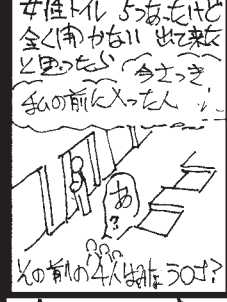 女性トイレ 5つあったけど
全く開かない 出て来た
と思ったら 今さっき
私の前に入った人
あ?
その前の4人は